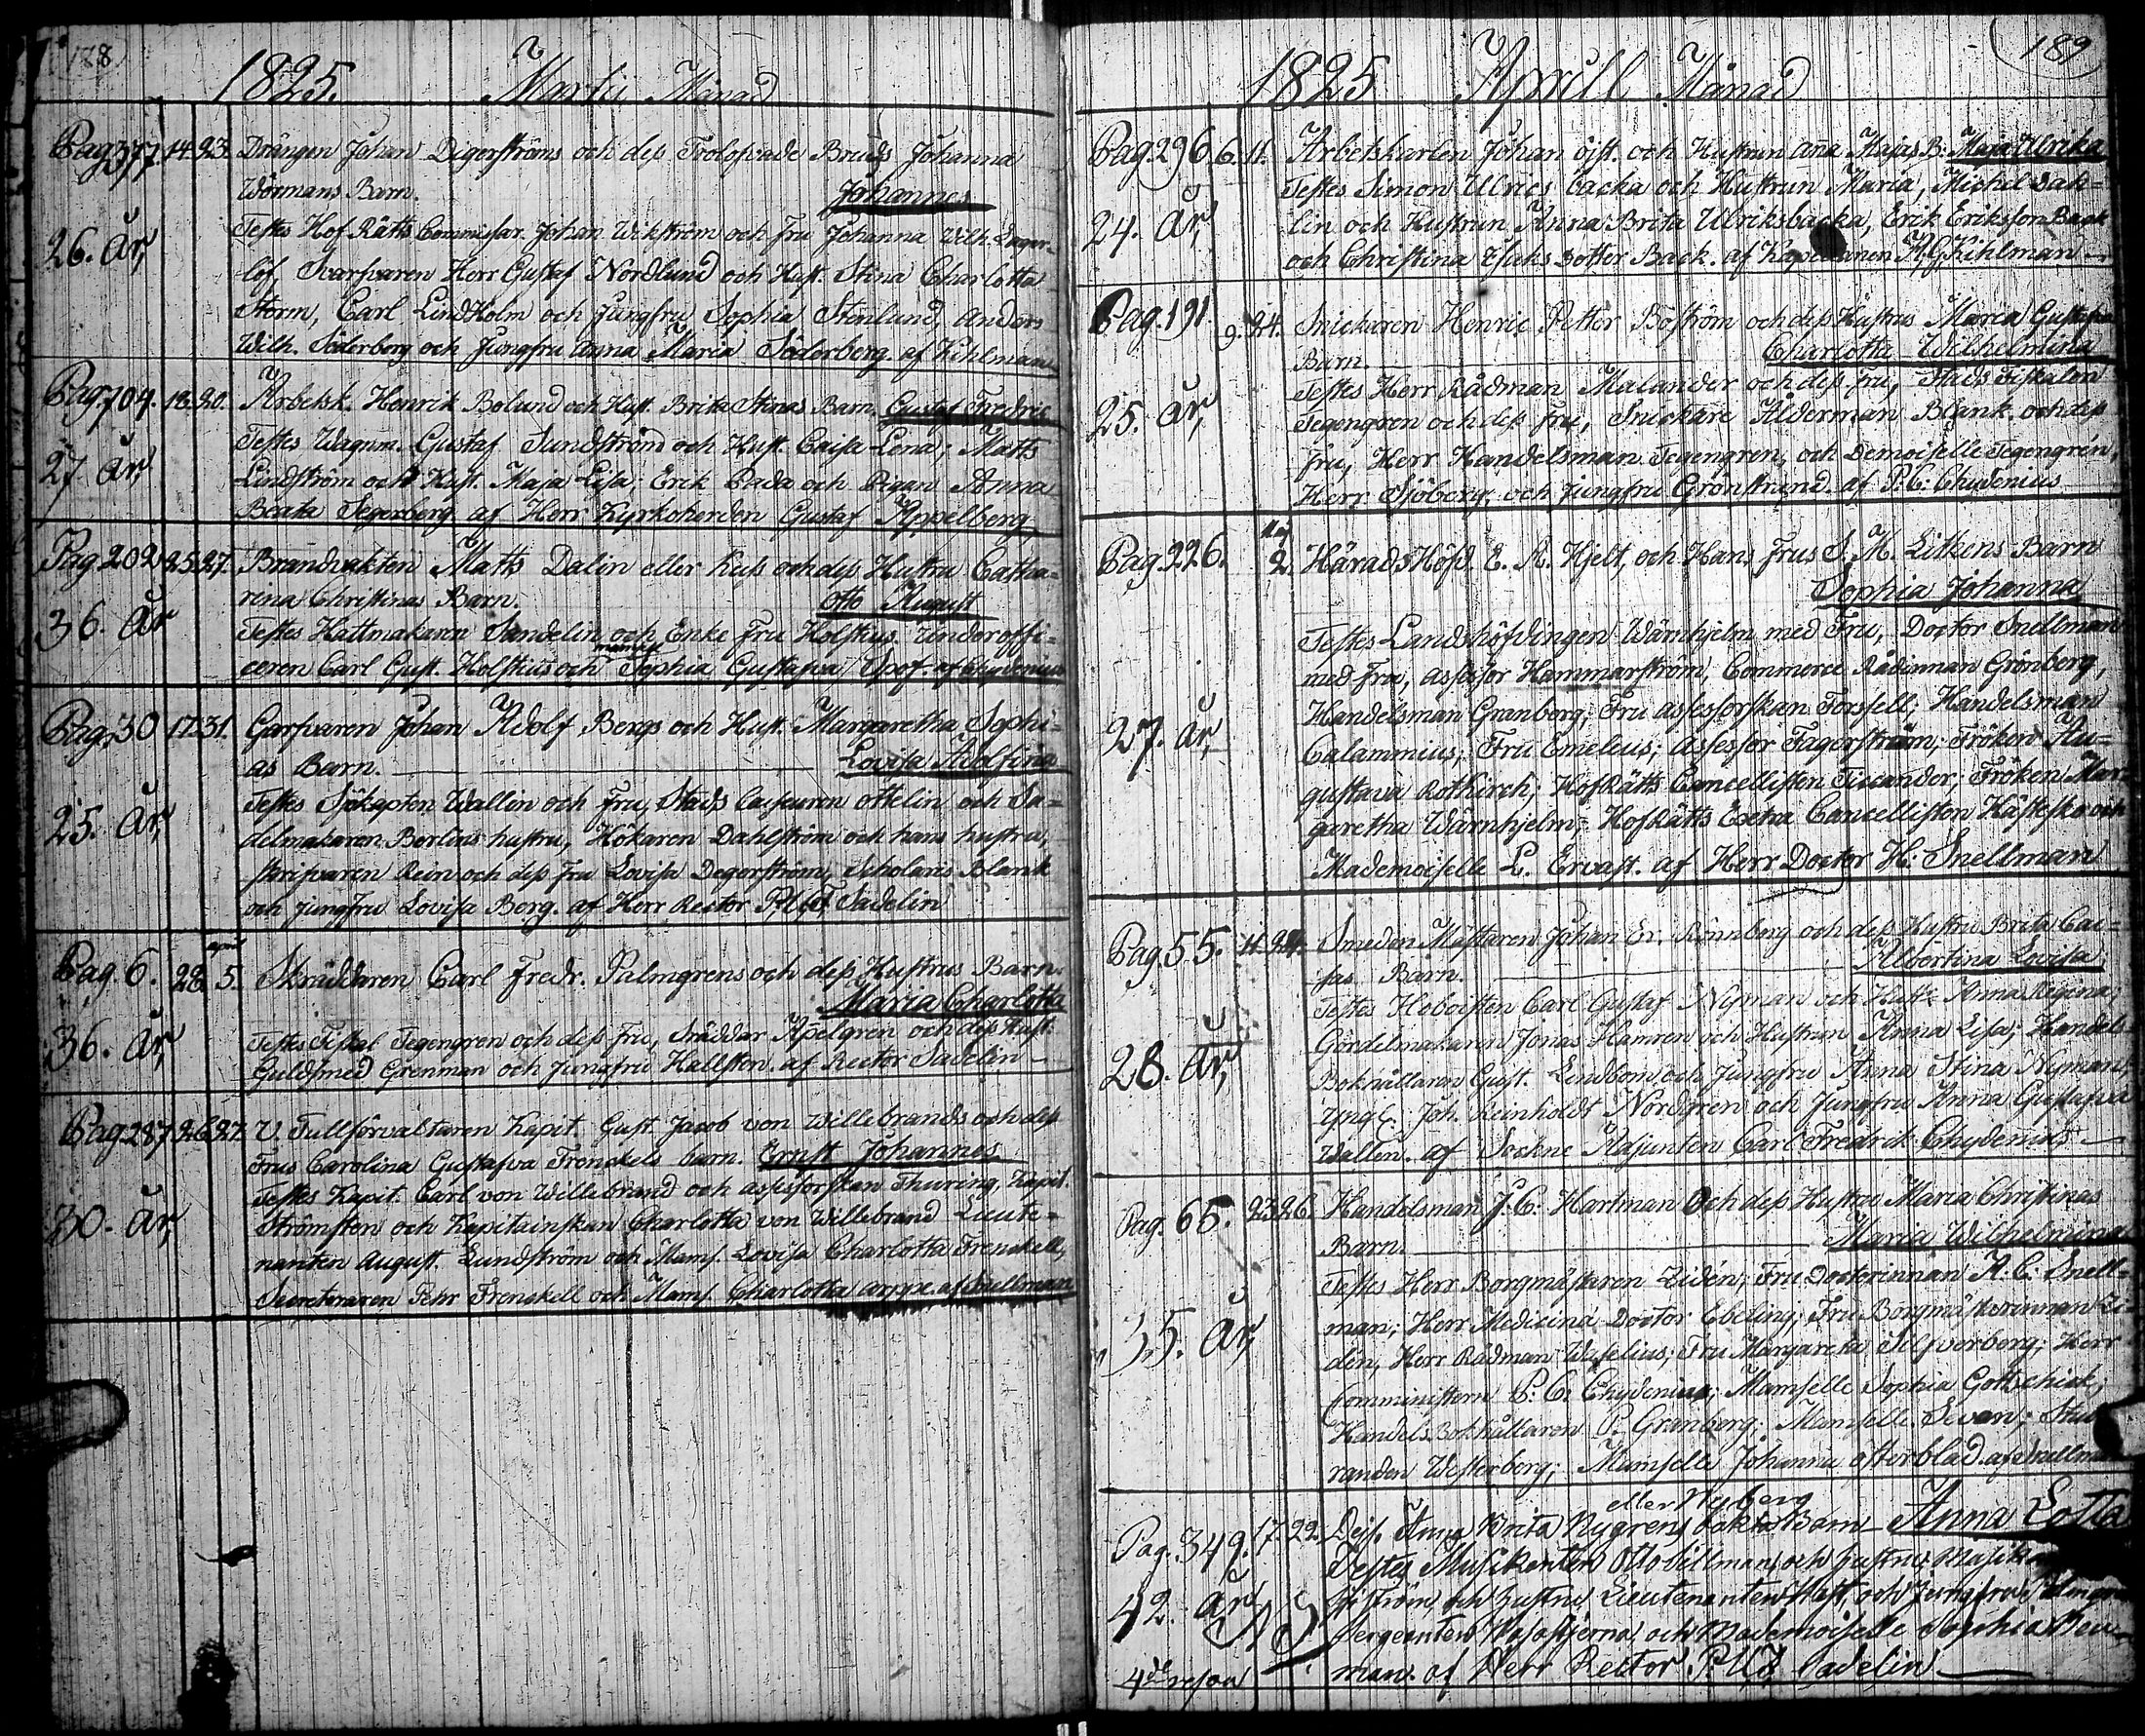 188
1825. Martii Månad
Pag. 377 14. 23. Drängen Johan Digerströms och dess Trolofvade Bruds Johanna
Wörmans Barn. Johannes
26. År, Testes Hof Rätts Commissar. Johan Wikström och Fru Johanna Wilh. Lager-
löf, Svarfvaren Herr Gustaf Nordlund och Hust. Stina Charlotta
Storm, Carl Lindholm och Jungfru Sophia Stenlund, Anders
Wilh. Söderberg och Jungfru Anna Maria Söderberg. af Kihlman
Pag. 704. 18. 20. Arbetsk. Henrik Bolund och Hust. Brita Stinas Barn. Gustaf Fredric
Testes Wagnm. Gustaf Sundström och Hust. Caisa Lena; Matts
27 År, Lindström och Hust. Maja Lisa; Erik Bada och Pigan Anna
Beata Segerberg af Herr Kyrkoherden Gustaf Appelberg
Pag 202 25. 27. Brandvakten Matts Dalin eller Kass och dess Hustru Catha-
rina Christinas Barn. Otto August
36. År Testes Hattmakaren Sandelin och Enke Fru Holstius. Underoffi-
ceren Carl Gust. Holstius och mamsell Sophia Gustafva Spof. af Chydenius
Pag. 30 17. 31. Garfvaren Johan Adolf Bergs och Hust. Margaretha Sophi-
as Barn. Lovisa Adolfina
25. År, Testes Sjökapten Wallin och Fru, Stads Casseuren Ottelin och Sa-
delmakaren Berlins hustru, Hökaren Dahlström och hans hustru,
Skrifvaren Rein och dess Fru Lovisa Degerström, Scholaris Blank
och jungfru Lovisa Berg. af Herr Rector P.U.F. Sadelin
april
Pag. 6. 28. 5. Skräddaren Carl Fredr. Palmgrens och dess Hustrus Barn.
Maria Charlotta
36. År, Testes Fiskal Tegengren och dess Fru, Sräddar Apelgren och dess Hust.
Guldsmed Grenman och Jungfru Hallsten. af Rector Sadelin
Pag 287 26. 27. V. Tullförvaltaren Kapit. Gust. Jacob von Willebrands och dess
Frus Carolina Gustafva Frenckels barn. Ernst Johannes
30. År, Testes Kapit. Carl von Willebrand och assessorskan Thuring, Kapit.
Strömsten och Kapitainskan Charlotta von Willebrand Lieute-
nanten August. Lundström och Mams. Lovisa Charlotta Frenckell,
Secreteraren Pehr Frenckell och Mams. Charlotta Arppe. af Snellman
189
1825 Aprill Månad
Pag. 296. 6. 11. Arbetskarlen Johan Öjst. och Hustrun Ana Majas B. Maja Ulrika
Testes Simon Ulrics backa och Hustrun Maria, Michel Dah-
24. År, lin och Hustrun Anna Brita Ulriksbacka, Erik Eriksson Back
och Christina Isaks Dotter Back. af Kapellanen A. G. Kihlman
Pag. 191 9. 24. Snickaren Henric Petter Boström och dess Hustrus Maria Gustafva
Barn. Charlotta Wilhelmina
25. År, Testes Herr Rådman Malander och dess Fru, Stads Fiskalen
Tegengren och dess Fru, Snickare Ålderman Blank och dess
fru, Herr Handelsman Tegengren, och Demoiselle Tegengrén,
Herr Sjöberg, och Jungfru Grönstrand. af P. C. Chydenius
Maj
Pag 226. 2. Härads Höfd. E. A. Hjelt, och Hans Frus S. M. Litkens Barn
Sophia Johanna
Testes Landshöfdingen Wärnhjelm med Fru, Doctor Snellman
med Fru, Assessor Hammarström, Commerce Rådinnan Grönberg,
27. År, Handelsman Granberg; Fru Assessorskan Forssell; Handelsman
Calammius; Fru Emeleus; Assessor Fagerström; Fröken Au-
gustava Rotkirch; HofRätts Cancellisten Ticcander, Fröken Mar
garetha Wärnhjelm; HofRätts Exetra Cancellisten Hästesko och
Mademoiselle L. Ervast. af Herr Doctor H: Snellman
Pag. 55. 11. 24. Smeden Mästaren Johan Er. Rönnberg och dess Hustru Brita Cai-
sas Barn. Albertina Lovisa
Testes Hoboisten Carl Gustaf Nyman och Hustr. Anna Regina;
Gördelmakaren Jonas Hamren och Hustrun Anna Lisa; Handels-
28. År, Bokhållaren Gust. Lindbom och Jungfru Anna Stina Nyman;
Yngl. Joh. Reinholdt Nordgren och Jungfru Anna Gustafva
Wallin. af Sockne Adjunkten Carl Fredrik Chydenius
Pag. 65. 23. 26. Handelsman J. C. Hartman Och dess Hustru Maria Christinas
Barn. Maria Wilhelmina
Testes Herr Borgmästaren Lidén; Fru Doctorinnan A. C. Snell-
man; Herr Medicina Doctor Ebeling; Fru Borgmästerinnan Li-
35. År, dén, Herr Rådman Waselius; Fru Margareta Silfverberg; Herr
Comministern P. C. Chydenius; Mamselle Sophia Gottschick;
Handels Bokhållaren P. Granberg; Mamselle Sevon; Stude-
randen Westerberg; Mamselle Johanna Österblad. af Snellman
eller Nyberg
Pag. 349. 17. 22. Dejs Anna Brita Nygrens oäkta Barn Anna Lotta
Testes Musikanten Otto Sillman och hustru Musika
42. År ström och hustru Lieutenanten Hast och Jungfru Palmgren
Sergeanten Wasastjerna och Mademoiselle Sophia Neu-
4de resan man. af Herr Rector P.U.F. Sadelin